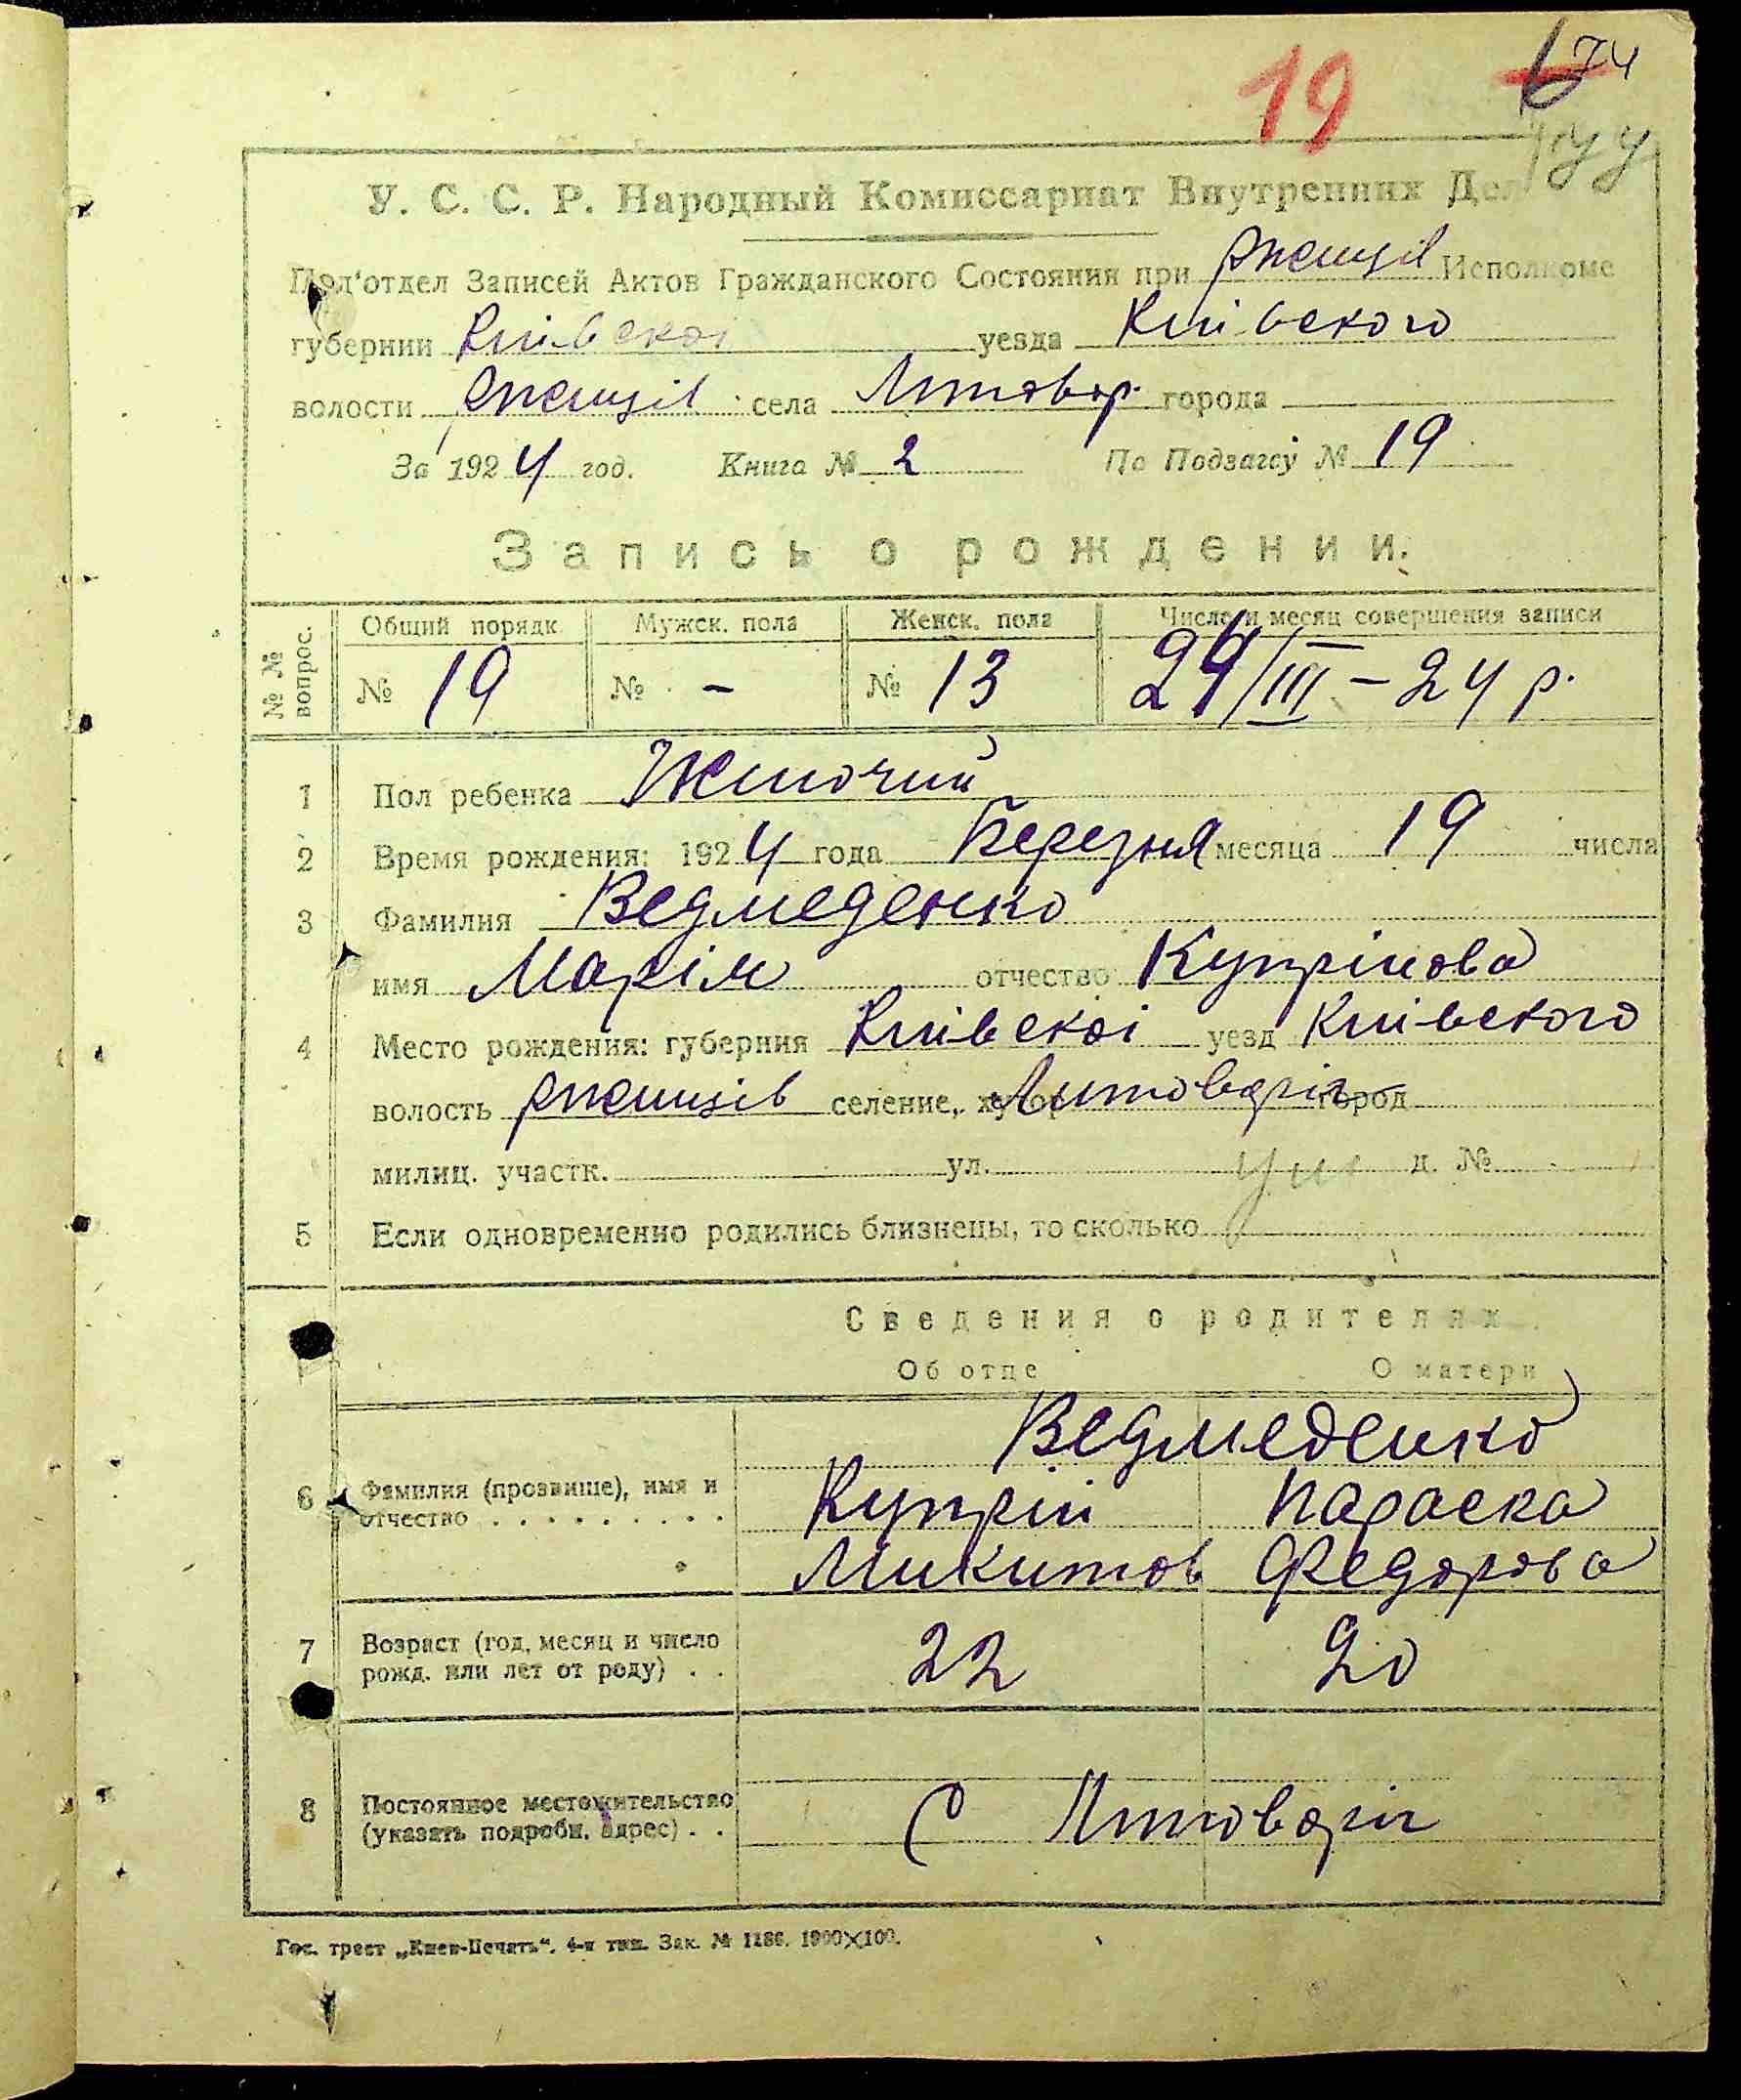 19 74
У. С. С. Р. Народный Комиссариат Внутренних Дел
Под'отдел Записей Актов Гражданского Состояния при Ржищів Исполкоме
губернии Київскоі уезда Київского
волости Ржищів села Литовор. города
За 1924 год. Книга № 2 По Подзагсу № 19
Запись о рождении.
№ № вопрос. Общий порядк. Мужск. пола Женск. пола Число и месяц совершения записи
№ 19 № - № 13 24/III - 24 р.
1 Пол ребенка Жіночий
2 Время рождения: 1924 года Березня месяца 19 числа
3 Фамилия Ведмеденко
имя Марія отчество Купріянова
4 Место рождения: губерния Київскоі уезд Київского
волость Ржищів селение, хутор город
милиц. участк. ул. д. №
5 Если одновременно родились близнецы, то сколько
Сведения о родителях
Об отце О матери
Ведмеденко
6 Фамилия (прозвище), имя и Купрій Параска
отчество . . . . . . . . .
Микитов Федорова
7 Возраст (год, месяц и число 22 20
рожд. или лет от роду) . .
8 Постоянное местожительство С
(указать подробн. адрес) . .
Гос. трест „Киев-Печать“. 4-я тип. Зак. № 1186. 1000×100.